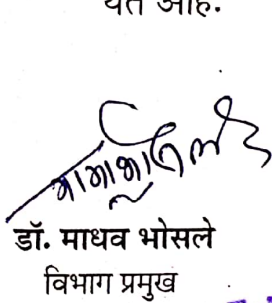 येत आहे.
डॉ. माधव भोसले
विभाग प्रमुख